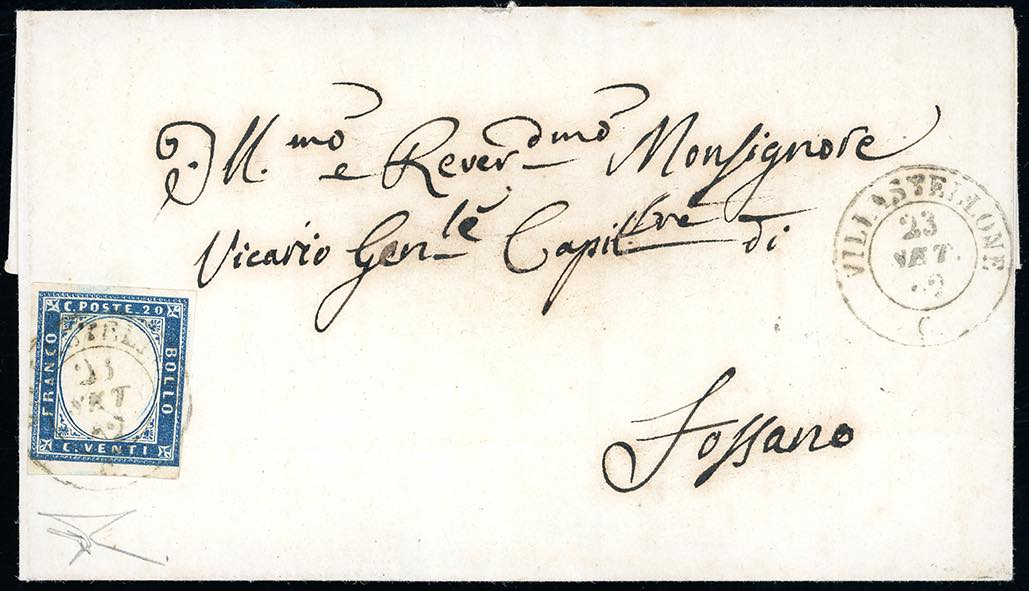 Ill.mo e Rever.dmo Monsignore
Vicario Gen.le Capit.lre di
Fossano
VILLASTELLONE
23
SET.
C. POSTE. 20
FRANCO
BOLLO
C. VENTI
23
SET